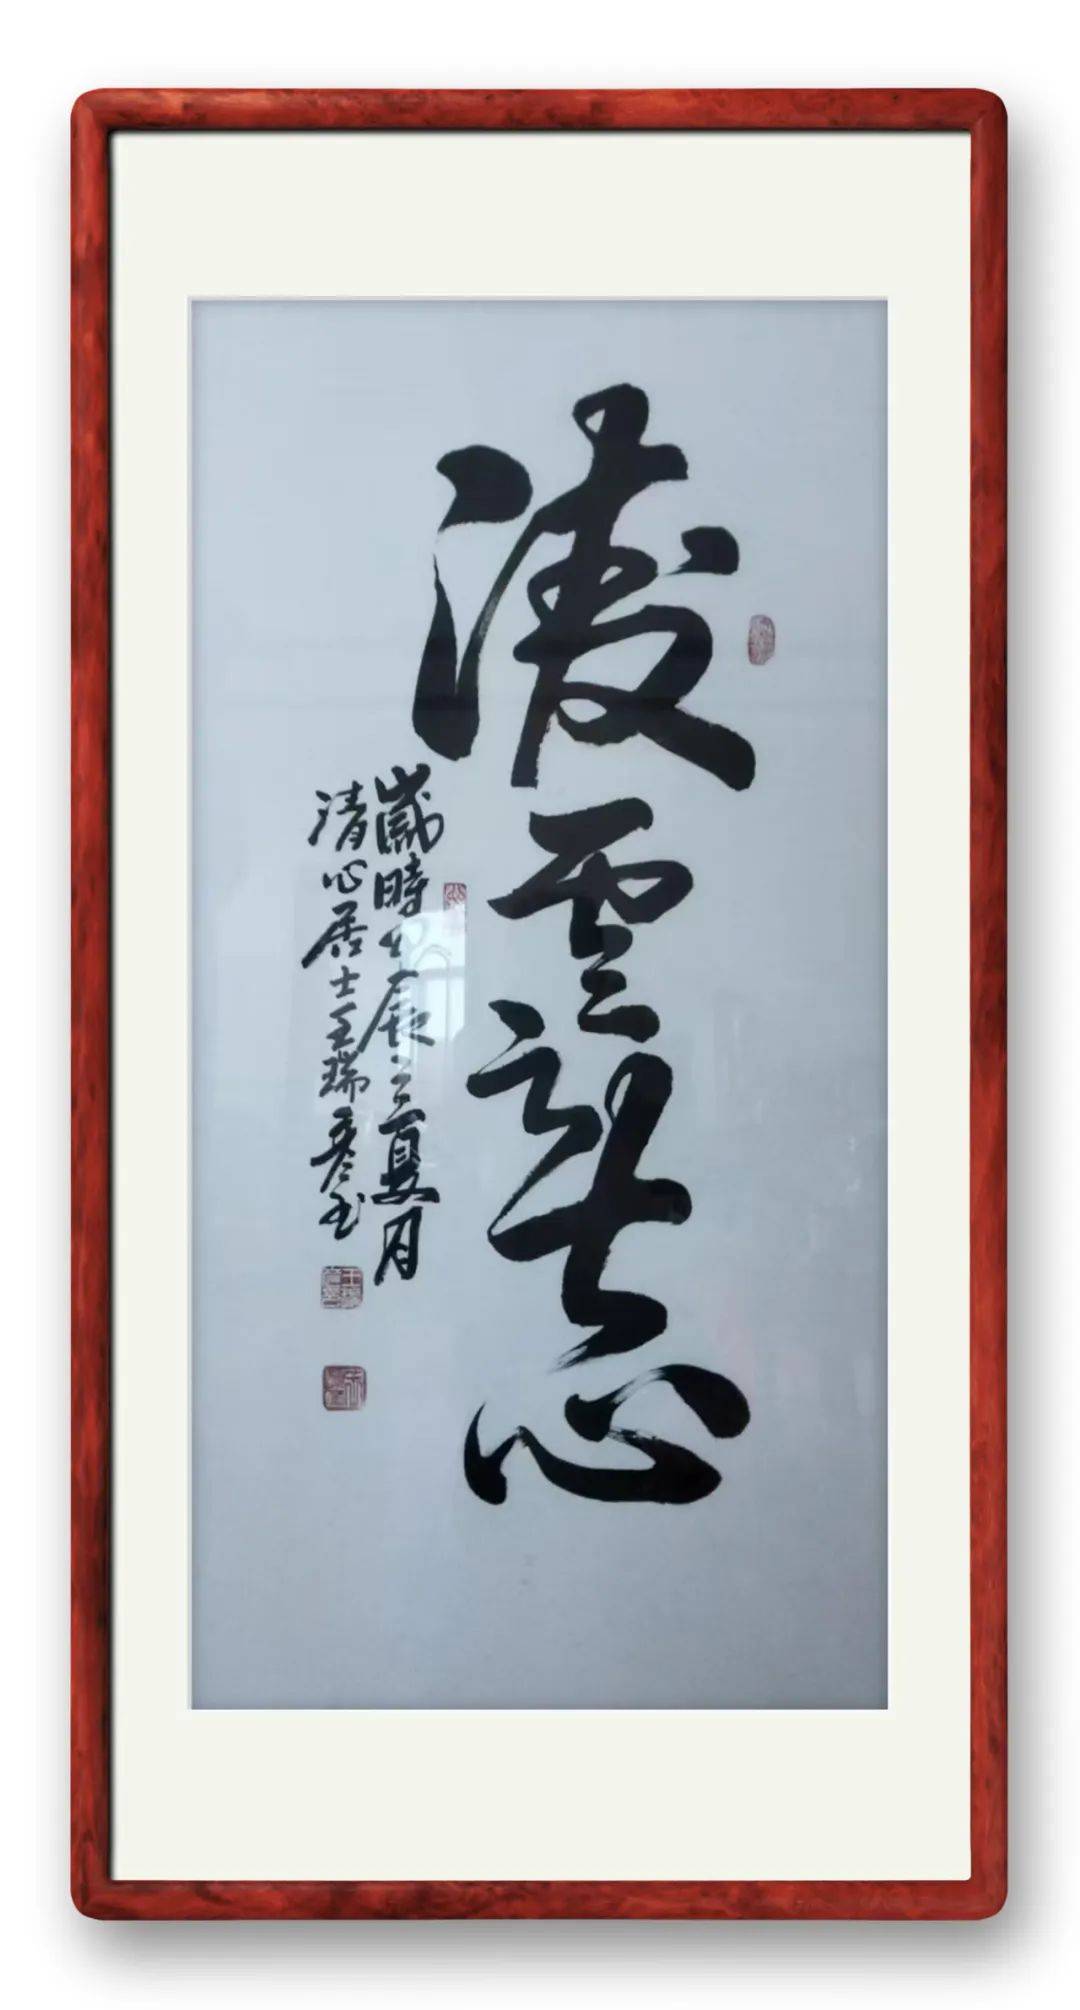 淩雲壯志
歲時甲辰之夏月
清心居士王瑞彦书